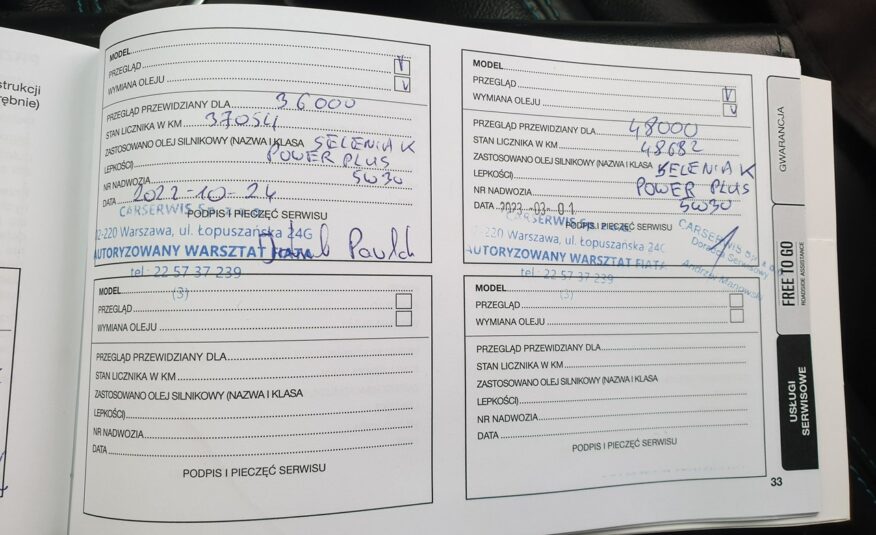 strukcji
rębnie)
MODEL
PRZEGLĄD V
WYMIANA OLEJU V
PRZEGLĄD PRZEWIDZIANY DLA 36000
STAN LICZNIKA W KM 37054
ZASTOSOWANO OLEJ SILNIKOWY (NAZWA I KLASA SELENIA K
LEPKOŚCI) POWER PLUS
NR NADWOZIA 5W30
DATA 2022-10-24
PODPIS I PIECZĘĆ SERWISU
CARSERWIS Sp. z o.o.
02-220 Warszawa, ul. Łopuszańska 24G
AUTORYZOWANY WARSZTAT FIATA
tel.: 22 57 37 239
(3)
MODEL
PRZEGLĄD
WYMIANA OLEJU
PRZEGLĄD PRZEWIDZIANY DLA
STAN LICZNIKA W KM
ZASTOSOWANO OLEJ SILNIKOWY (NAZWA I KLASA
LEPKOŚCI)
NR NADWOZIA
DATA
PODPIS I PIECZĘĆ SERWISU
MODEL
PRZEGLĄD V
WYMIANA OLEJU V
PRZEGLĄD PRZEWIDZIANY DLA 48000
STAN LICZNIKA W KM 48682
ZASTOSOWANO OLEJ SILNIKOWY (NAZWA I KLASA SELENIA K
LEPKOŚCI) POWER PLUS
NR NADWOZIA 5W30
DATA 2023-03-01
PODPIS I PIECZĘĆ SERWISU
CARSERWIS Sp. z o.o.
-220 Warszawa, ul. Łopuszańska 24G
AUTORYZOWANY WARSZTAT FIATA
tel.: 22 57 37 239
(3)
CARSERWIS Sp. z o.o.
Doradca Serwisowy
Andrzej Manowski
MODEL
PRZEGLĄD
WYMIANA OLEJU
PRZEGLĄD PRZEWIDZIANY DLA
STAN LICZNIKA W KM
ZASTOSOWANO OLEJ SILNIKOWY (NAZWA I KLASA
LEPKOŚCI)
NR NADWOZIA
DATA
PODPIS I PIECZĘĆ SERWISU
GWARANCJA
FREE TO GO
ROADSIDE ASSISTANCE
USŁUGI
SERWISOWE
33